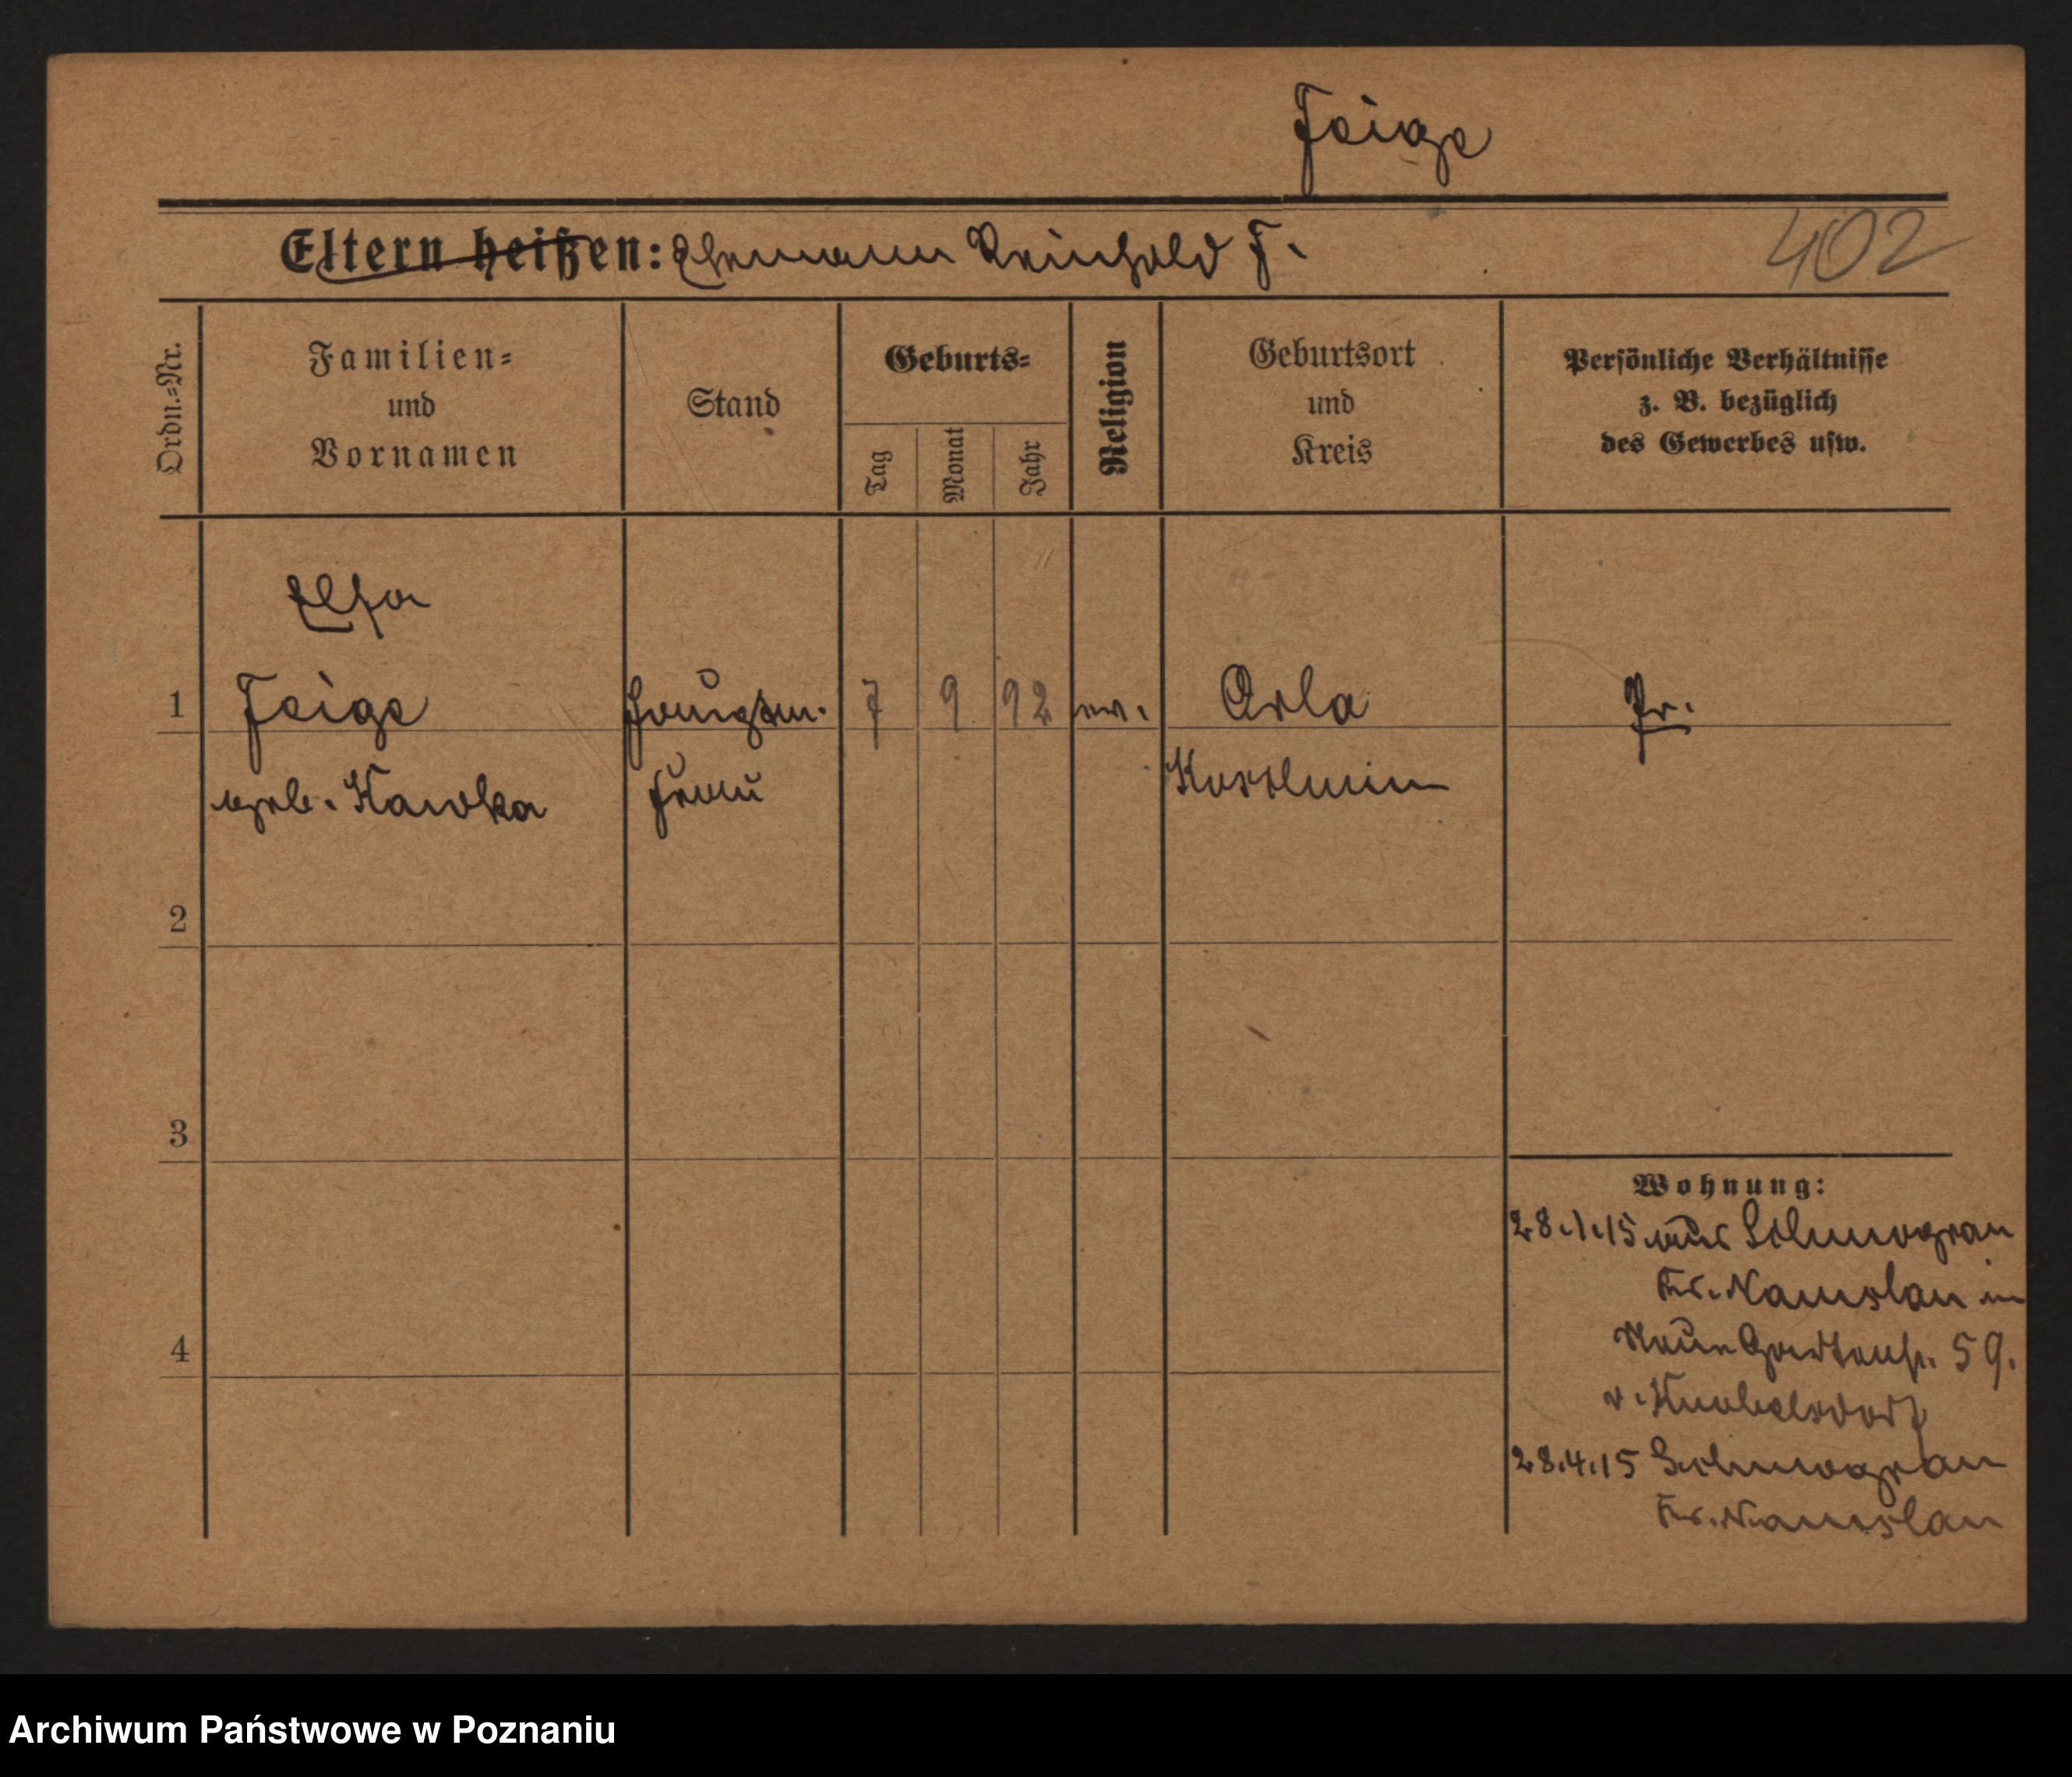 Feige
Eltern heißen: Ehemann Reinhold F.
402
Ordn.-Nr.
Familien-
und
Vornamen
Stand
Geburts-
Tag
Monat
Jahr
Religion
Geburtsort
und
Kreis
Persönliche Verhältnisse
z. B. bezüglich
des Gewerbes usw.
Elsa
1 Feige 7 9 92 ev. Orla Pr.
geb. Kawka frau Koschmin
2
3
4
Wohnung:
28.1.15 aus Schmograu
Kr. Namslau in
Neue Gartenstr. 59.
v. Knobelsdorf
28.4.15 Schmograu
Kr. Namslau
Archiwum Państwowe w Poznaniu